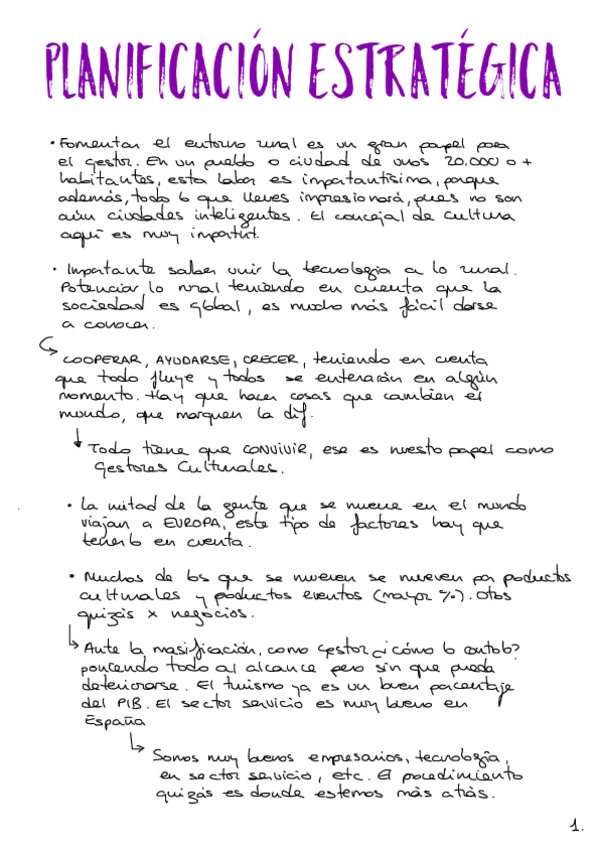 PLANIFICACIÓN ESTRATÉGICA
· Fomentar el entorno rural es un gran papel para
el gestor. En un pueblo o ciudad de unos 20.000 o +
habitantes, esta labor es importantísima, porque
además, todo lo que lleves impresionará, pues no son
aún ciudades inteligentes. El concejal de cultura
aquí es muy importnt.
· Importante saber unir la tecnología a lo rural.
Potenciar lo rural teniendo en cuenta que la
sociedad es global, es mucho más fácil darse
a conocer.
COOPERAR, AYUDARSE, CRECER, teniendo en cuenta
que todo fluye y todos se enterarán en algún
momento. Hay que hacer cosas que cambien el
mundo, que marquen la dif.
Todo tiene que CONVIVIR, ese es nuestro papel como
Gestores Culturales.
· La mitad de la gente que se mueve en el mundo
viajan a EUROPA, este tipo de factores hay que
tenerlo en cuenta.
· Muchos de los que se mueven se mueven por productos
culturales y productos eventos (mayor %). Otros
quizás x negocios.
Ante la masificación, como gestor ¿cómo lo contolo?
poniendo todo al alcance pero sin que pueda
deteriorarse. El turismo ya es un buen porcentaje
del PIB. El sector servicio es muy bueno en
España
Somos muy buenos empresarios, tecnología,
en sector servicio, etc. El procedimiento
quizás es donde estemos más atrás.
1.